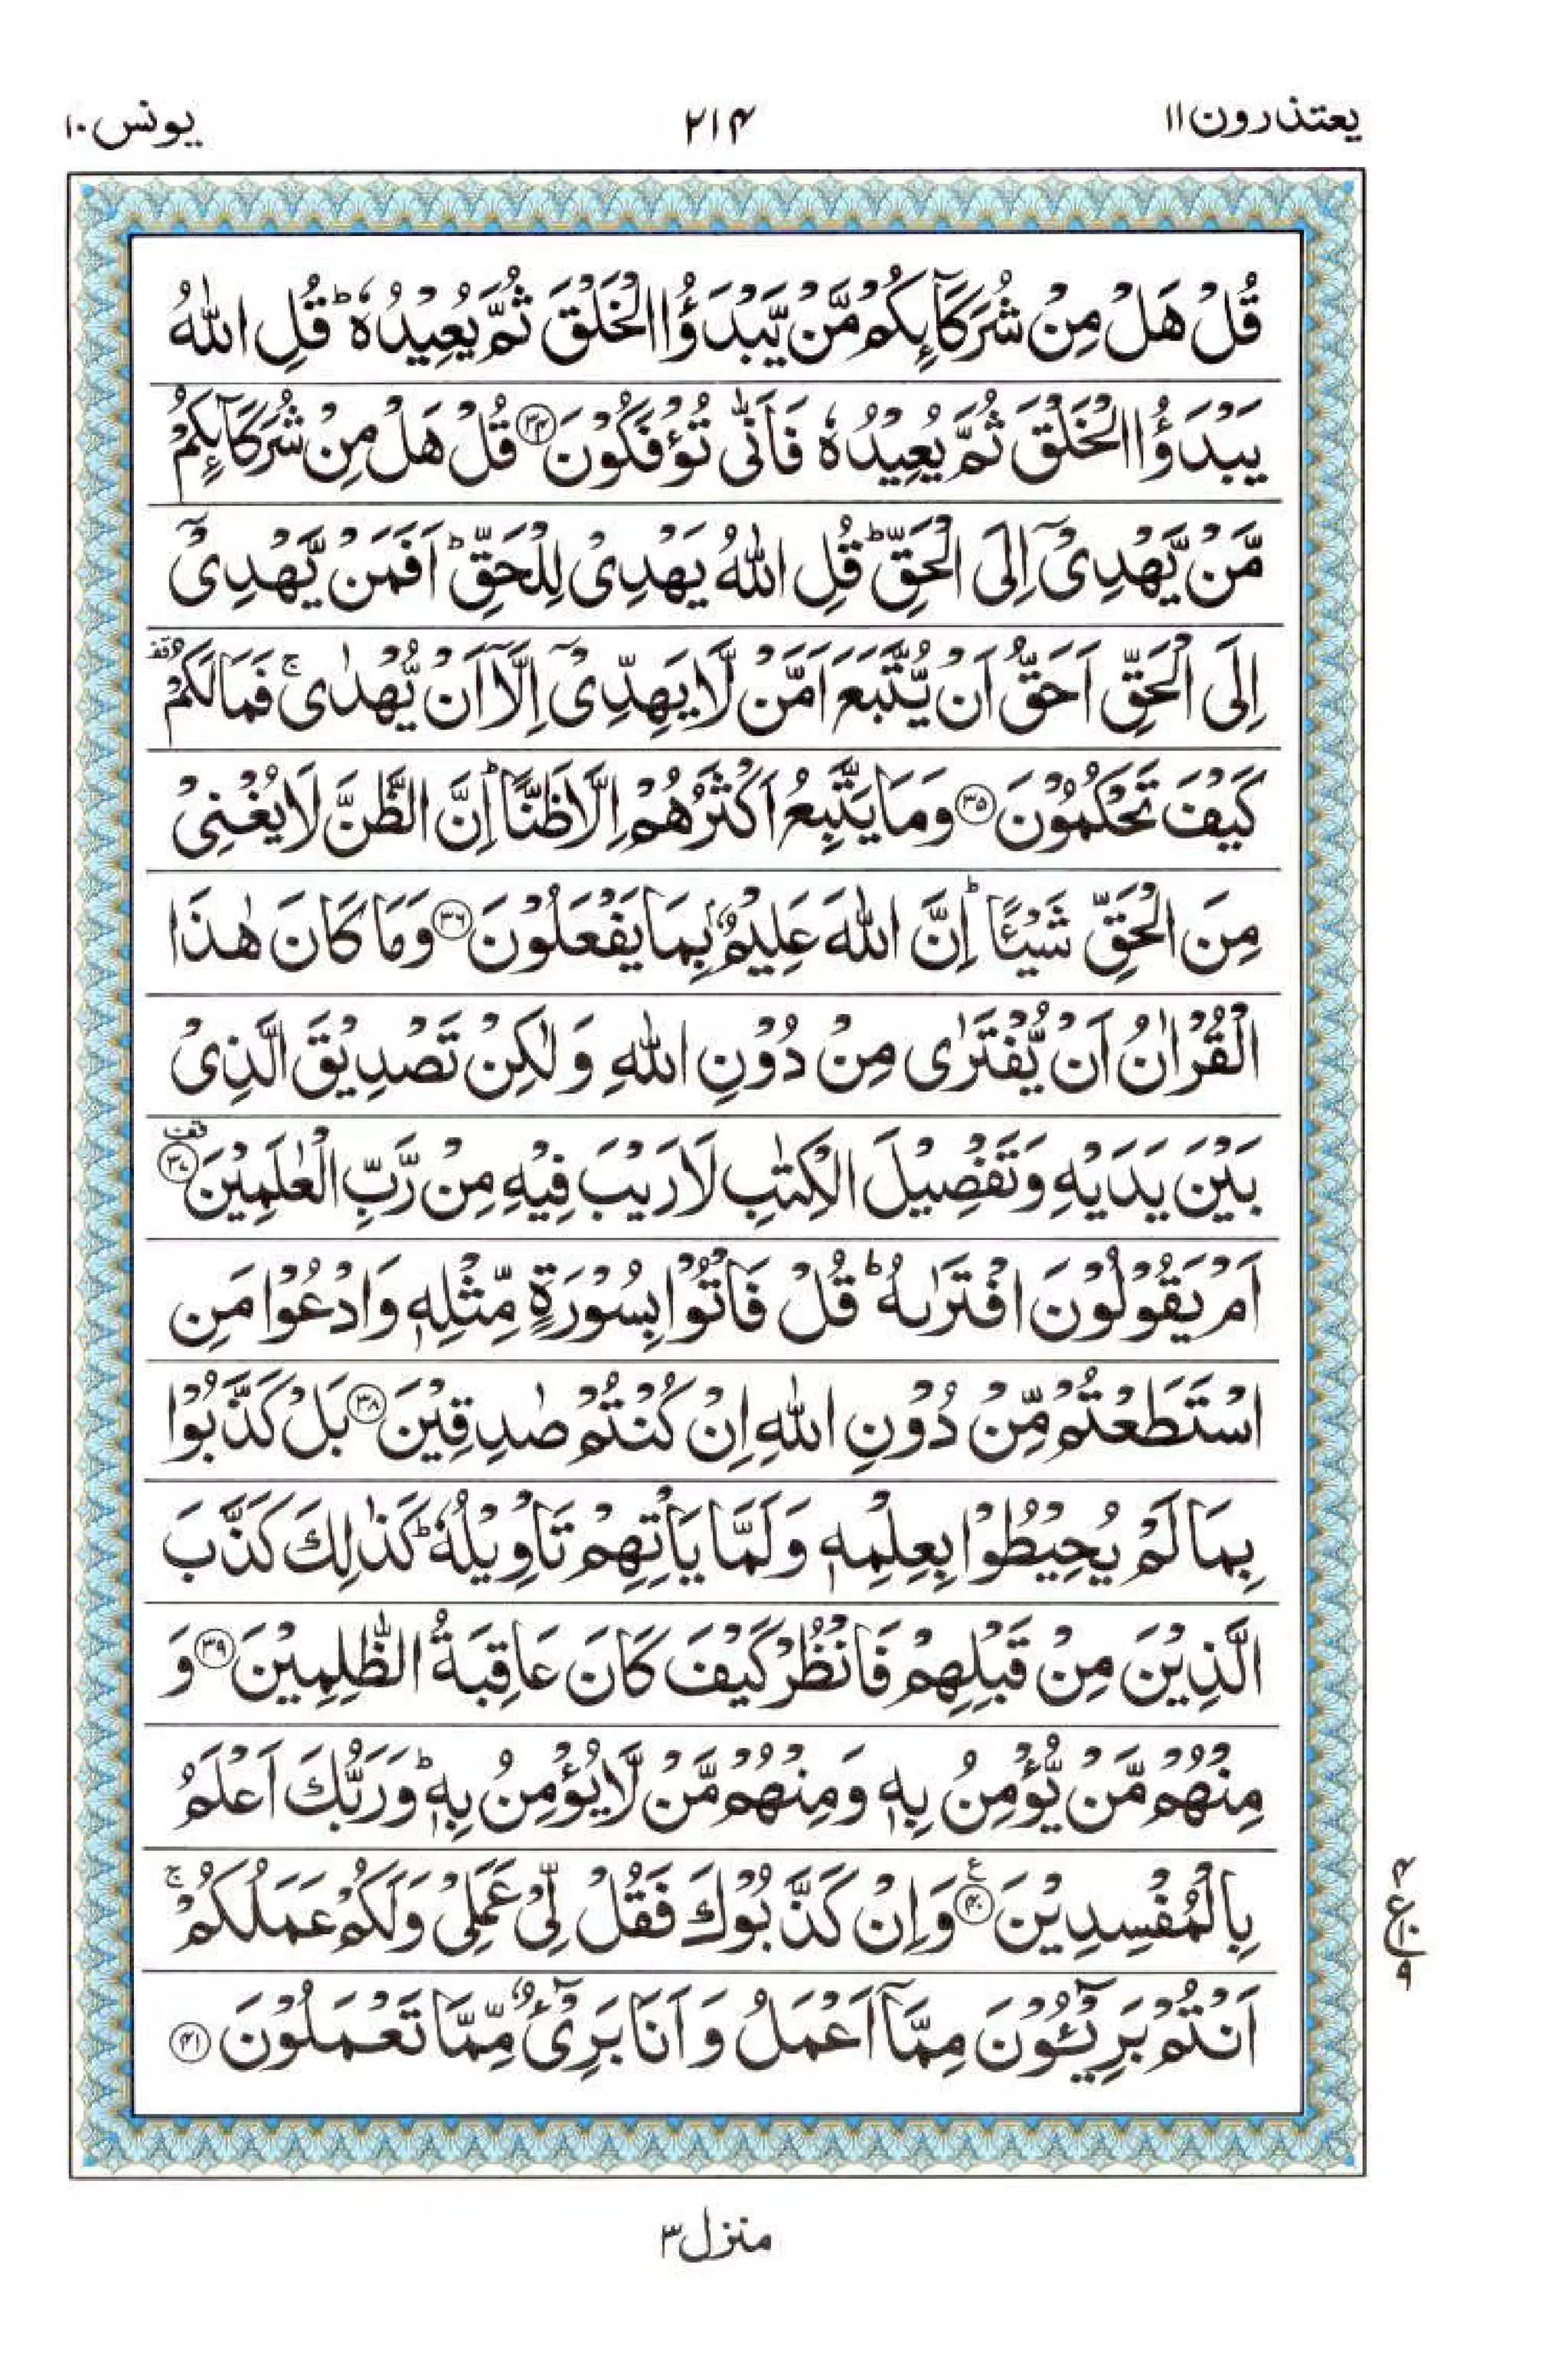 یعتذرون ۱۱
۲۱۴
یونس ۱۰
قُلْ هَلْ مِنْ شُرَكَآىِٕكُمْ مَّنْ یَّبْدَؤُا الْخَلْقَ ثُمَّ یُعِیْدُهٗ ؕ قُلِ اللّٰهُ
یَبْدَؤُا الْخَلْقَ ثُمَّ یُعِیْدُهٗ فَاَنّٰی تُؤْفَكُوْنَ ۝۳۴ قُلْ هَلْ مِنْ شُرَكَآىِٕكُمْ
مَّنْ یَّهْدِیْۤ اِلَی الْحَقِّ ؕ قُلِ اللّٰهُ یَهْدِیْ لِلْحَقِّ ؕ اَفَمَنْ یَّهْدِیْۤ
اِلَی الْحَقِّ اَحَقُّ اَنْ یُّتَّبَعَ اَمَّنْ لَّا یَهِدِّیْۤ اِلَّاۤ اَنْ یُّهْدٰی ۚ فَمَا لَكُمْ ۫ قف
كَیْفَ تَحْكُمُوْنَ ۝۳۵ وَمَا یَتَّبِعُ اَكْثَرُهُمْ اِلَّا ظَنًّا ؕ اِنَّ الظَّنَّ لَا یُغْنِیْ
مِنَ الْحَقِّ شَیْـًٔا ؕ اِنَّ اللّٰهَ عَلِیْمٌۢ بِمَا یَفْعَلُوْنَ ۝۳۶ وَمَا كَانَ هٰذَا
الْقُرْاٰنُ اَنْ یُّفْتَرٰی مِنْ دُوْنِ اللّٰهِ وَلٰكِنْ تَصْدِیْقَ الَّذِیْ
بَیْنَ یَدَیْهِ وَتَفْصِیْلَ الْكِتٰبِ لَا رَیْبَ فِیْهِ مِنْ رَّبِّ الْعٰلَمِیْنَ ۝۳۷ قف
اَمْ یَقُوْلُوْنَ افْتَرٰىهُ ؕ قُلْ فَاْتُوْا بِسُوْرَةٍ مِّثْلِهٖ وَادْعُوْا مَنِ
اسْتَطَعْتُمْ مِّنْ دُوْنِ اللّٰهِ اِنْ كُنْتُمْ صٰدِقِیْنَ ۝۳۸ بَلْ كَذَّبُوْا
بِمَا لَمْ یُحِیْطُوْا بِعِلْمِهٖ وَلَمَّا یَاْتِهِمْ تَاْوِیْلُهٗ ؕ كَذٰلِكَ كَذَّبَ
الَّذِیْنَ مِنْ قَبْلِهِمْ فَانْظُرْ كَیْفَ كَانَ عَاقِبَةُ الظّٰلِمِیْنَ ۝۳۹ وَ
مِنْهُمْ مَّنْ یُّؤْمِنُ بِهٖ وَمِنْهُمْ مَّنْ لَّا یُؤْمِنُ بِهٖ ؕ وَرَبُّكَ اَعْلَمُ
بِالْمُفْسِدِیْنَ ۝۴۰ ع وَاِنْ كَذَّبُوْكَ فَقُلْ لِّیْ عَمَلِیْ وَلَكُمْ عَمَلُكُمْ ۚ
اَنْتُمْ بَرِیْٓـُٔوْنَ مِمَّاۤ اَعْمَلُ وَاَنَا بَرِیْٓءٌ مِّمَّا تَعْمَلُوْنَ ۝۴۱
۴
ع ۱۰
۹
منزل ۳